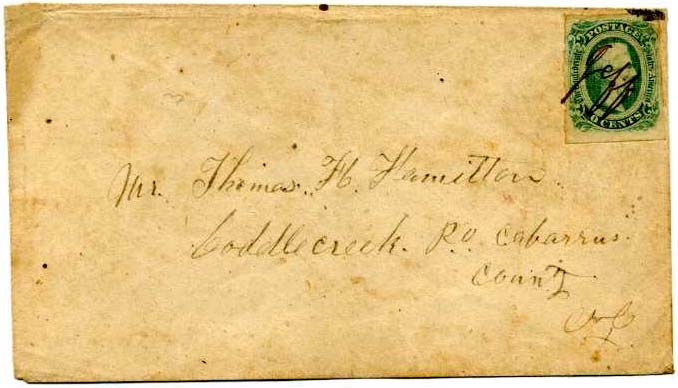 POSTAGE
The Confederate States of America
CENTS
Jeff
Mr. Thomas. H. Hamilton.
Coddlecreek. P.O. Cabarrus.
County
N C